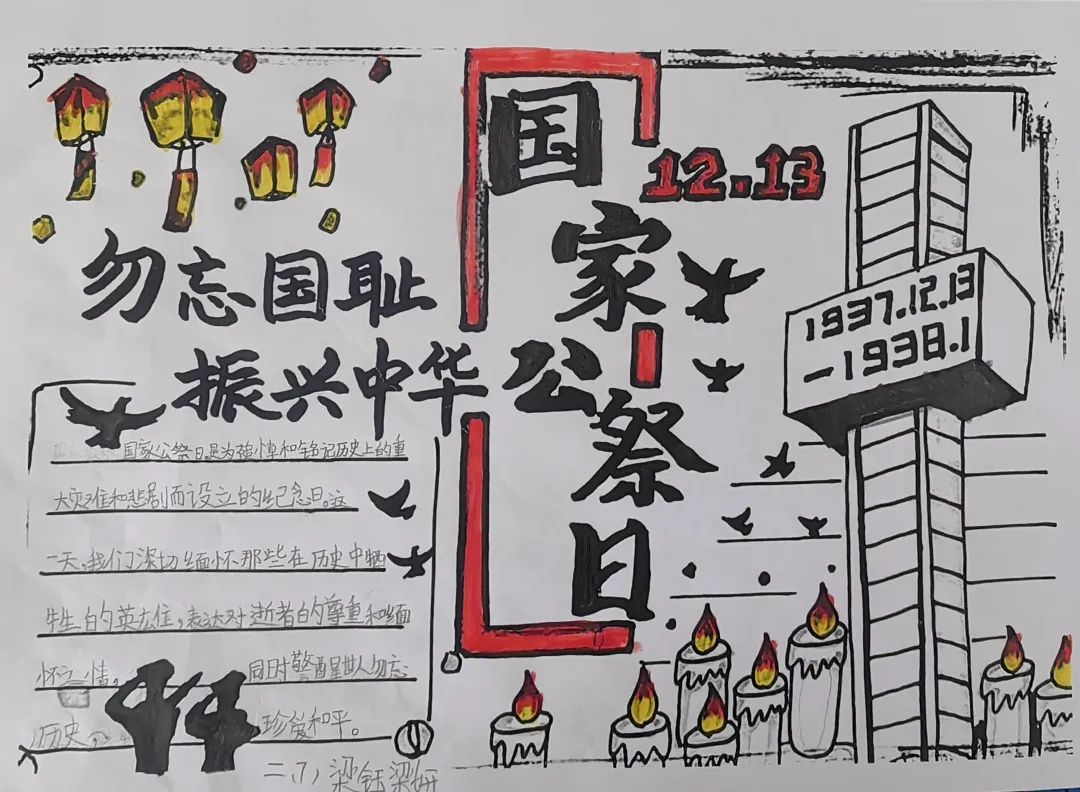 国家公祭日
12.13
勿忘国耻
振兴中华
1937.12.13
-1938.1
国家公祭日是为确悼和铭记历史上的重
大灾难和悲剧而设立的纪念日。这
一天,我们深切缅怀那些在历史中牺
牲的英雄,表达对逝者的尊重和缅
怀之情,同时警醒世人勿忘
历史,珍爱和平。
二、7、梁钰梁妍